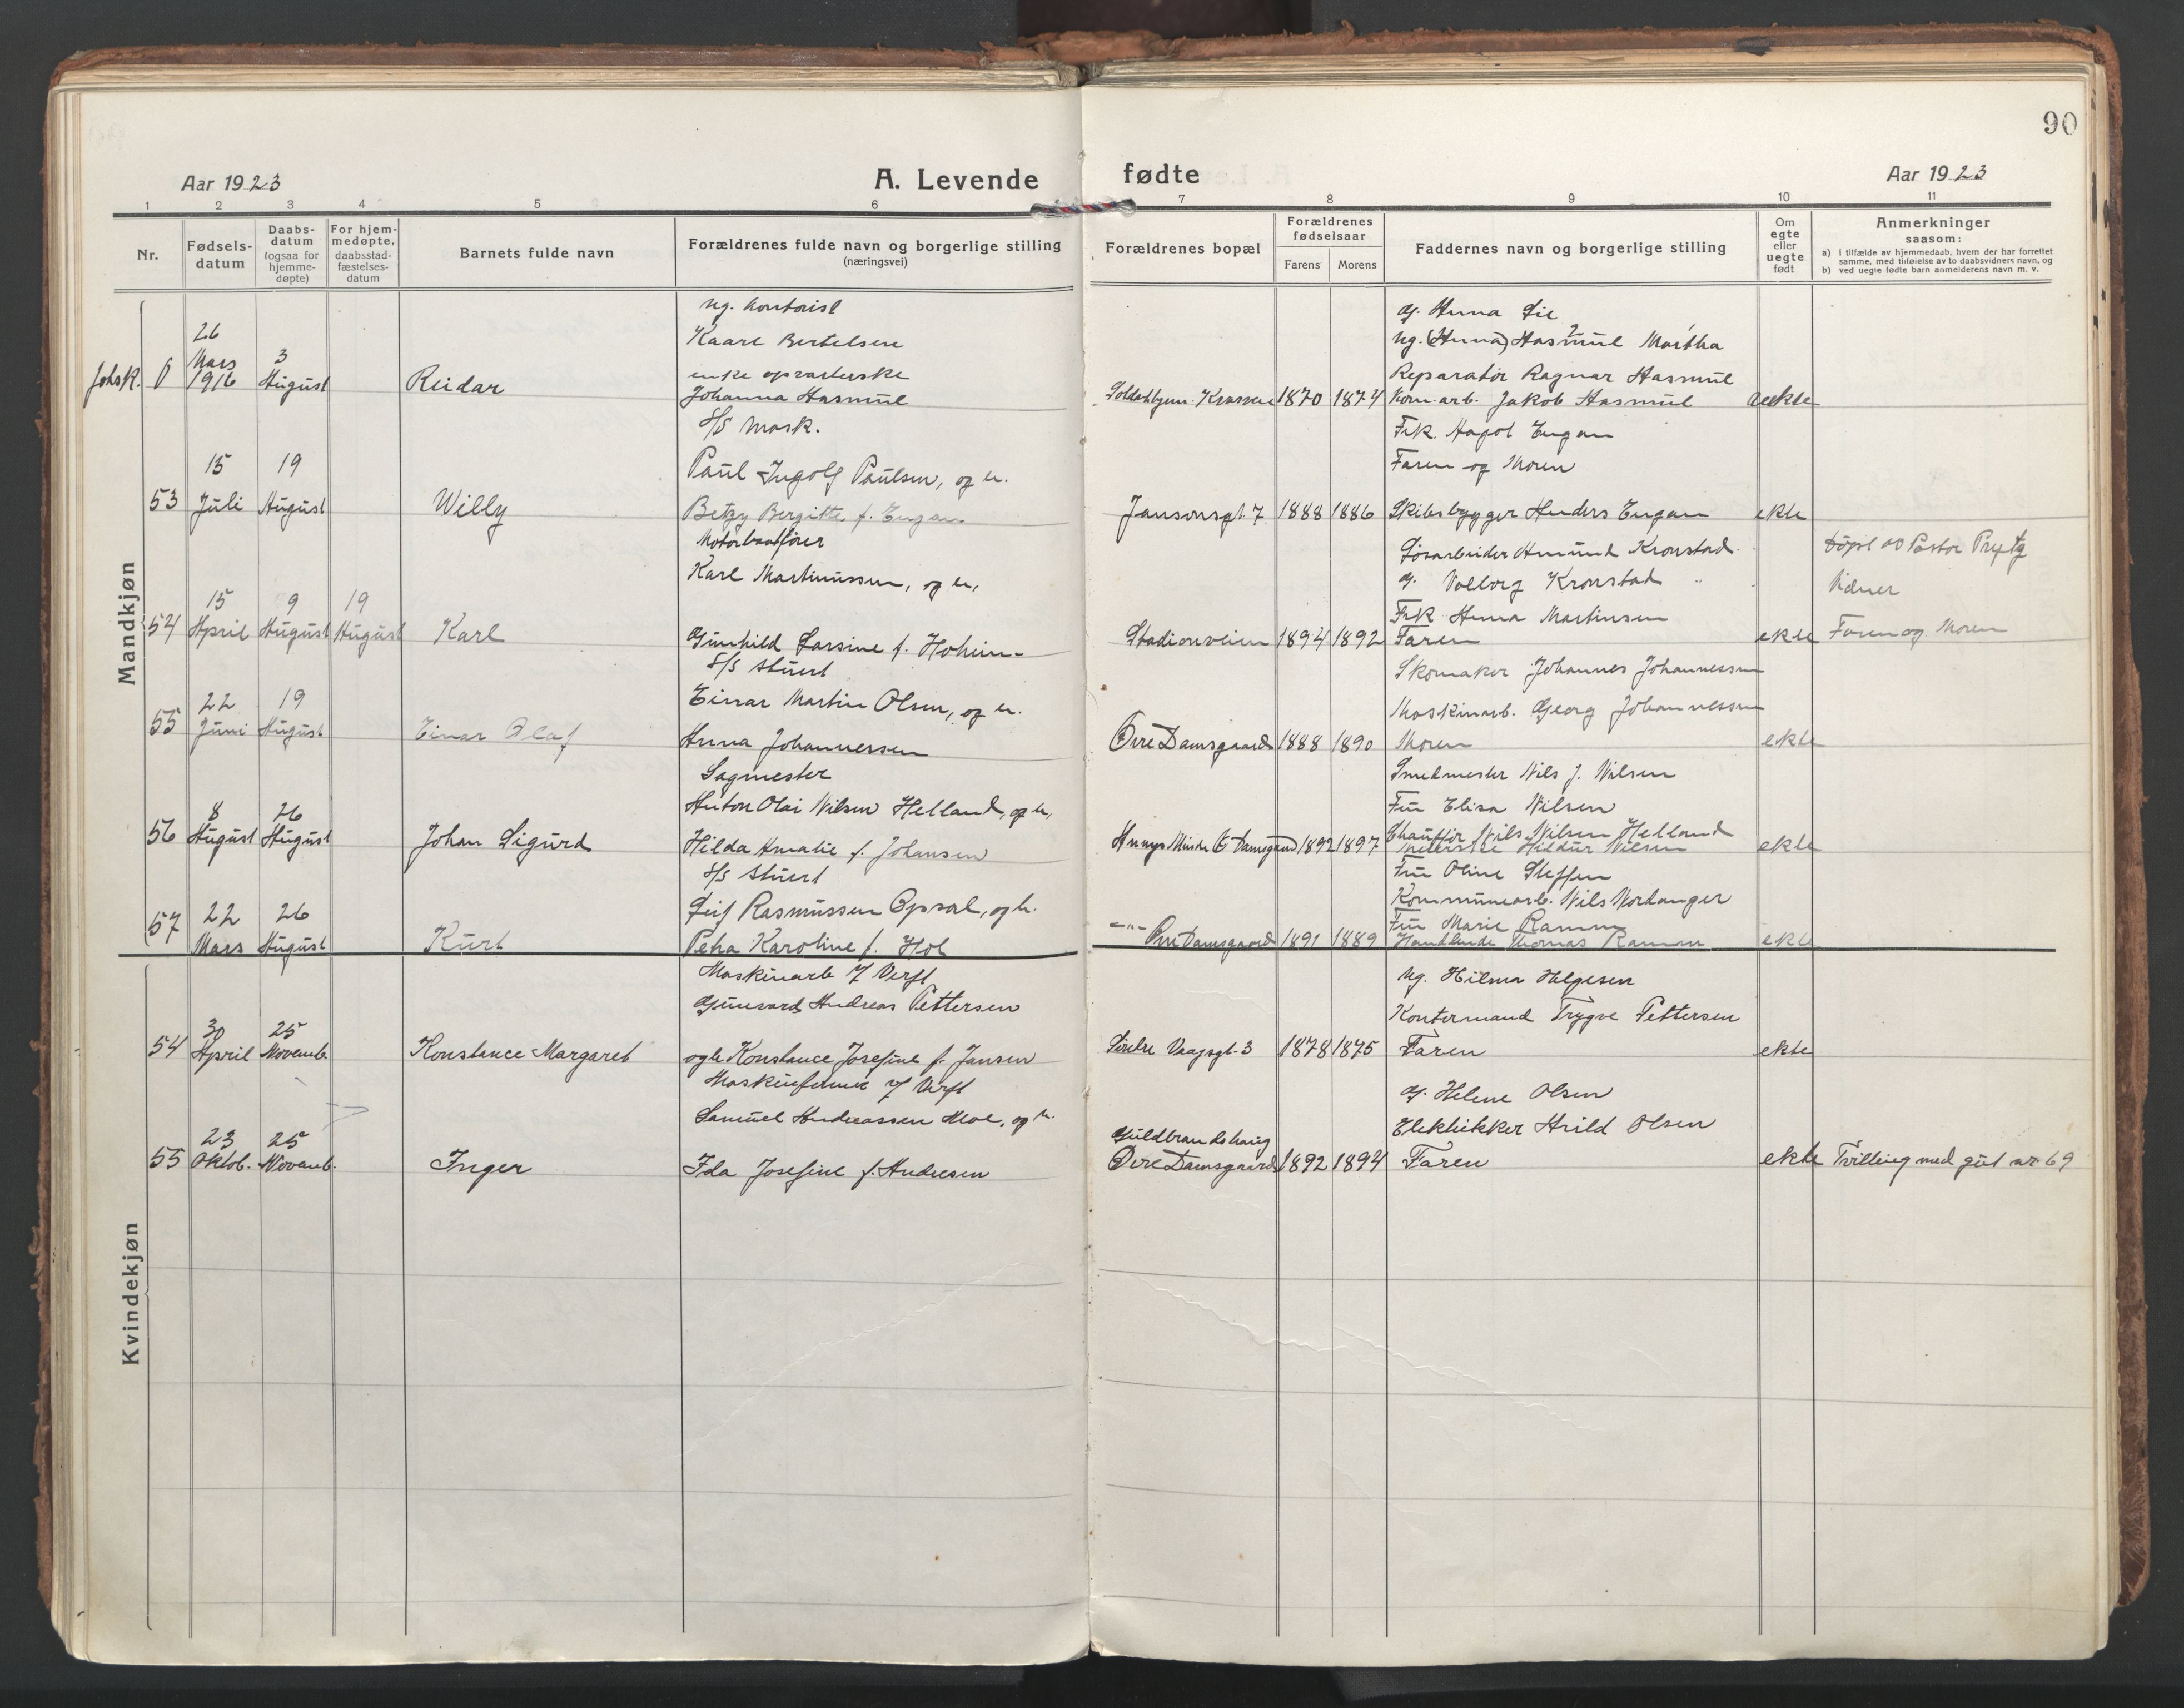 90
Aar 1923
A. Levende
fødte
Aar 1923
1 2 3 4 5 6 7 8 9 10 11
Nr.
Fødsels-
datum
Daabs-
datum
(ogsaa for
hjemme-
døpte)
For hjem-
medøpte,
daabsstad-
fæstelses-
datum
Barnets fulde navn
Forældrenes fulde navn og borgerlige stilling
(næringsvei)
Forældrenes bopæl
Forældrenes
fødselsaar
Farens
Morens
Faddernes navn og borgerlige stilling
Om
egte
eller
uegte
født
Anmerkninger
saasom:
a) i tilfælde av hjemmedaab, hvem der har forrettet
samme, med tilføielse av to daabsvidners navn, og
b) ved uegte fødte barn anmelderens navn m. v.
Mandkjøn
Johsk. 0
26
Mars
1916
3
August
Reidar
ug. kontorist
Kaare Bertelsen
enke opvarterske
Johanna Aasmul
1870 1874
g. Anna Lie
ug. (Anna) Aasmul Martha
Reparatør Ragnar Aasmul
Kom. arb. Jakob Aasmul
uekte
53
15
Juli
19
August
Willy
S/S Mask.
Paul Ingolf Paulsen, og h.
Betzy Bergitte f. Engan
Jansonsgt. 7 1888 1886
Frk. Aagot Engan
Faren og Moren
Skibsbygger Anders Engan
ekte
54
15
April
9
August
19
August
Karl
Motorbaatfører
Karl Martinussen, og h.
Gunhild Larsine f. Hoheim
Stadionveien 1894 1892
Løsarbeider Amund Kronstad
g. Valborg Kronstad
Frk Anna Martinsen
Faren
ekte
Døpt av Pastor Prytz
Vidner
Faren og Moren
55
22
Juni
19
August
Einar Olaf
S/S Stuert
Einar Martin Olsen, og h.
Anna Johannessen
Øvre Damsgaard 1888 1890
Skomaker Johannes Johannessen
Maskinarb. Georg Johannessen
Moren
ekte
56
8
August
26
August
Johan Sigurd
Sagmester
Anton Olai Nilsen Helland, og h.
Hilda Amalie f. Johansen
Annys Minde Ø Damsgaard 1892 1897
Smedmester Nils J. Nilsen
Fru Elisa Nilsen
Chauffør Nils Nilsen Helland
Hildur Nilsen
ekte
57
22
Mars
26
August
Kurt
S/S Stuert
Leif Rasmussen Opsal, og h.
Petra Karoline f. Hol
Øvre Damsgaard 1891 1889
Fru Oline Steffen
Kommunearb. Nils Nordanger
Fru Marie Ramm
Handlende Thomas Ramm
ekte
Kvindekjøn
54
30
April
25
Novemb.
Konstance Margaret
Maskinarb. L Verft
Gunvard Andreas Pettersen
og h. Konstance Josefine f. Jansen
Vaagsgt. 3 1878 1875
ug. Hilma Helgesen
Kontormand Trygve Pettersen
Faren
ekte
55
23
Oktob.
25
Novemb.
Inger
Maskinformer L Verft
Samuel Andreassen Moe, og h.
Ida Josefine f. Andresen
Guldbrandshaug
Øvre Damsgaard 1892 1894
g. Helene Olsen
Elektrikker Arild Olsen
Faren
ekte
Tvilling med gut nr 69